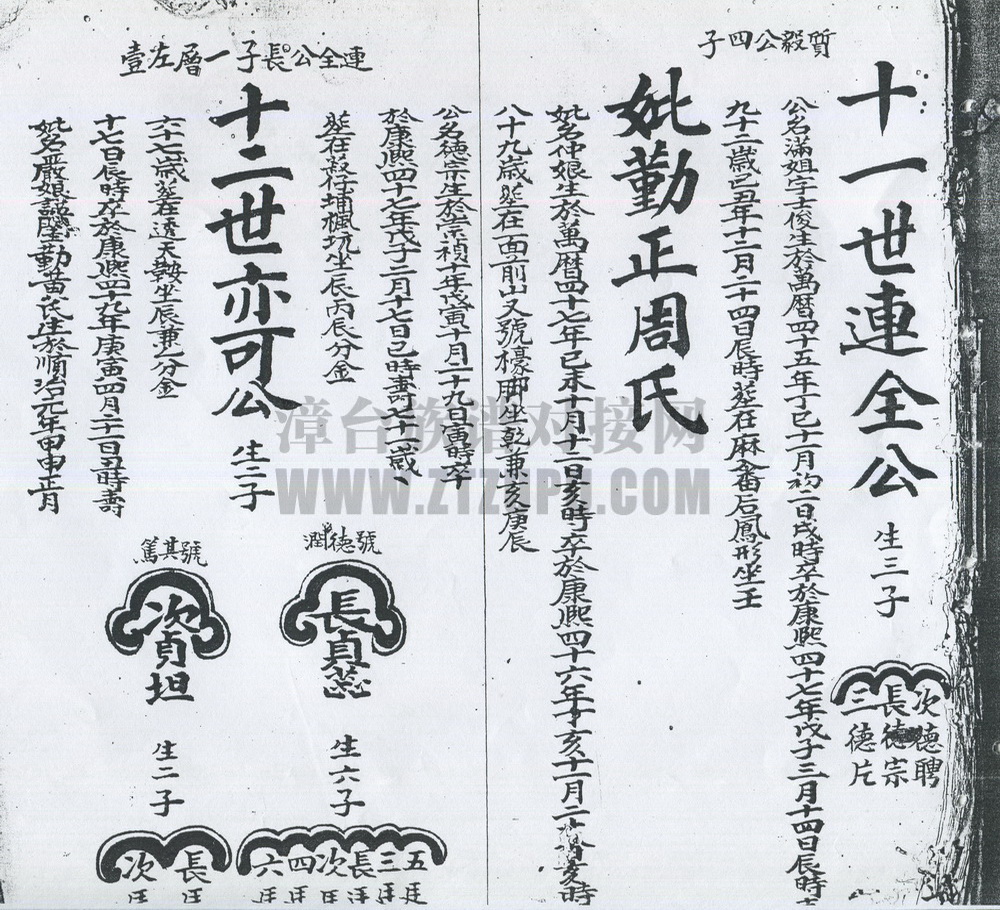 質毅公四子
十一世連全公
生三子
次德聘
長德宗
三德片
公名滿姐字士俊生於萬曆四十五年丁巳十一月初二日戌時卒於康熙四十七年戊子三月十四日辰時
九十二歲己丑年十二月二十四日辰時葬在麻畬后鳳形坐壬
妣勤正周氏
妣名仲娘生於萬曆四十七年己未十月十二日亥時卒於康熙四十六年丁亥十一月二十
八十九歲葬在面前山又號檺脚坐乾兼亥庚辰
連全公長子一層左壹
公名德宗生於崇禎十年戊寅十月二十九日寅時卒
於康熙四十七年戊子二月十七日巳時壽七十一歲
坐辰丙辰分金
十二世亦可公
生二子
號德潤
長貞蕊
生六子
五
三
長
次
四
六
號其篤
次貞坦
生二子
長
次
六十七歲葬在透天熱坐辰兼乙分金
十七日辰時卒於康熙四十九年庚寅四月二十一日丑時壽
妣名嚴娘謚 勤黃氏生於順治元年甲申正月
漳台族谱对接网
WWW.ZTZUPU.COM